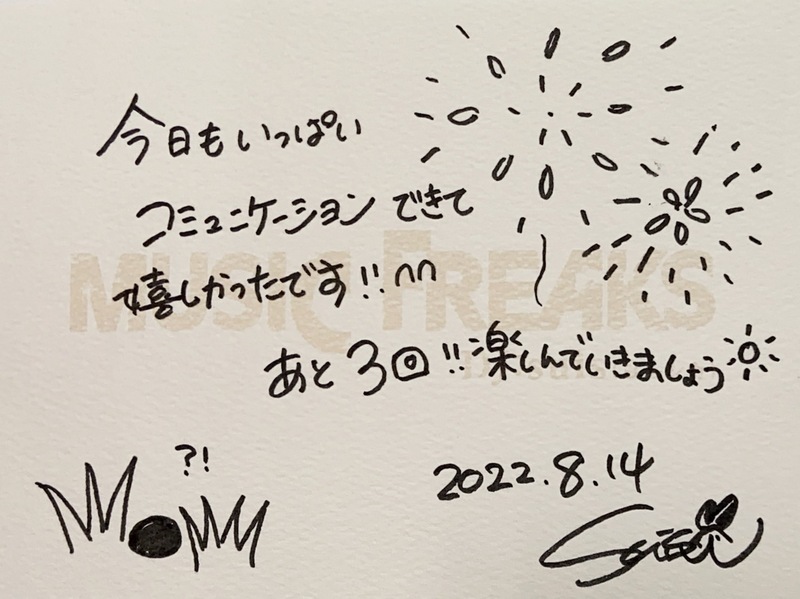 今日もいっぱい
コミュニケーションできて
嬉しかったです!!
MUSIC FREAKS
あと3回!!楽しんでいきましょう
?!
2022.8.14